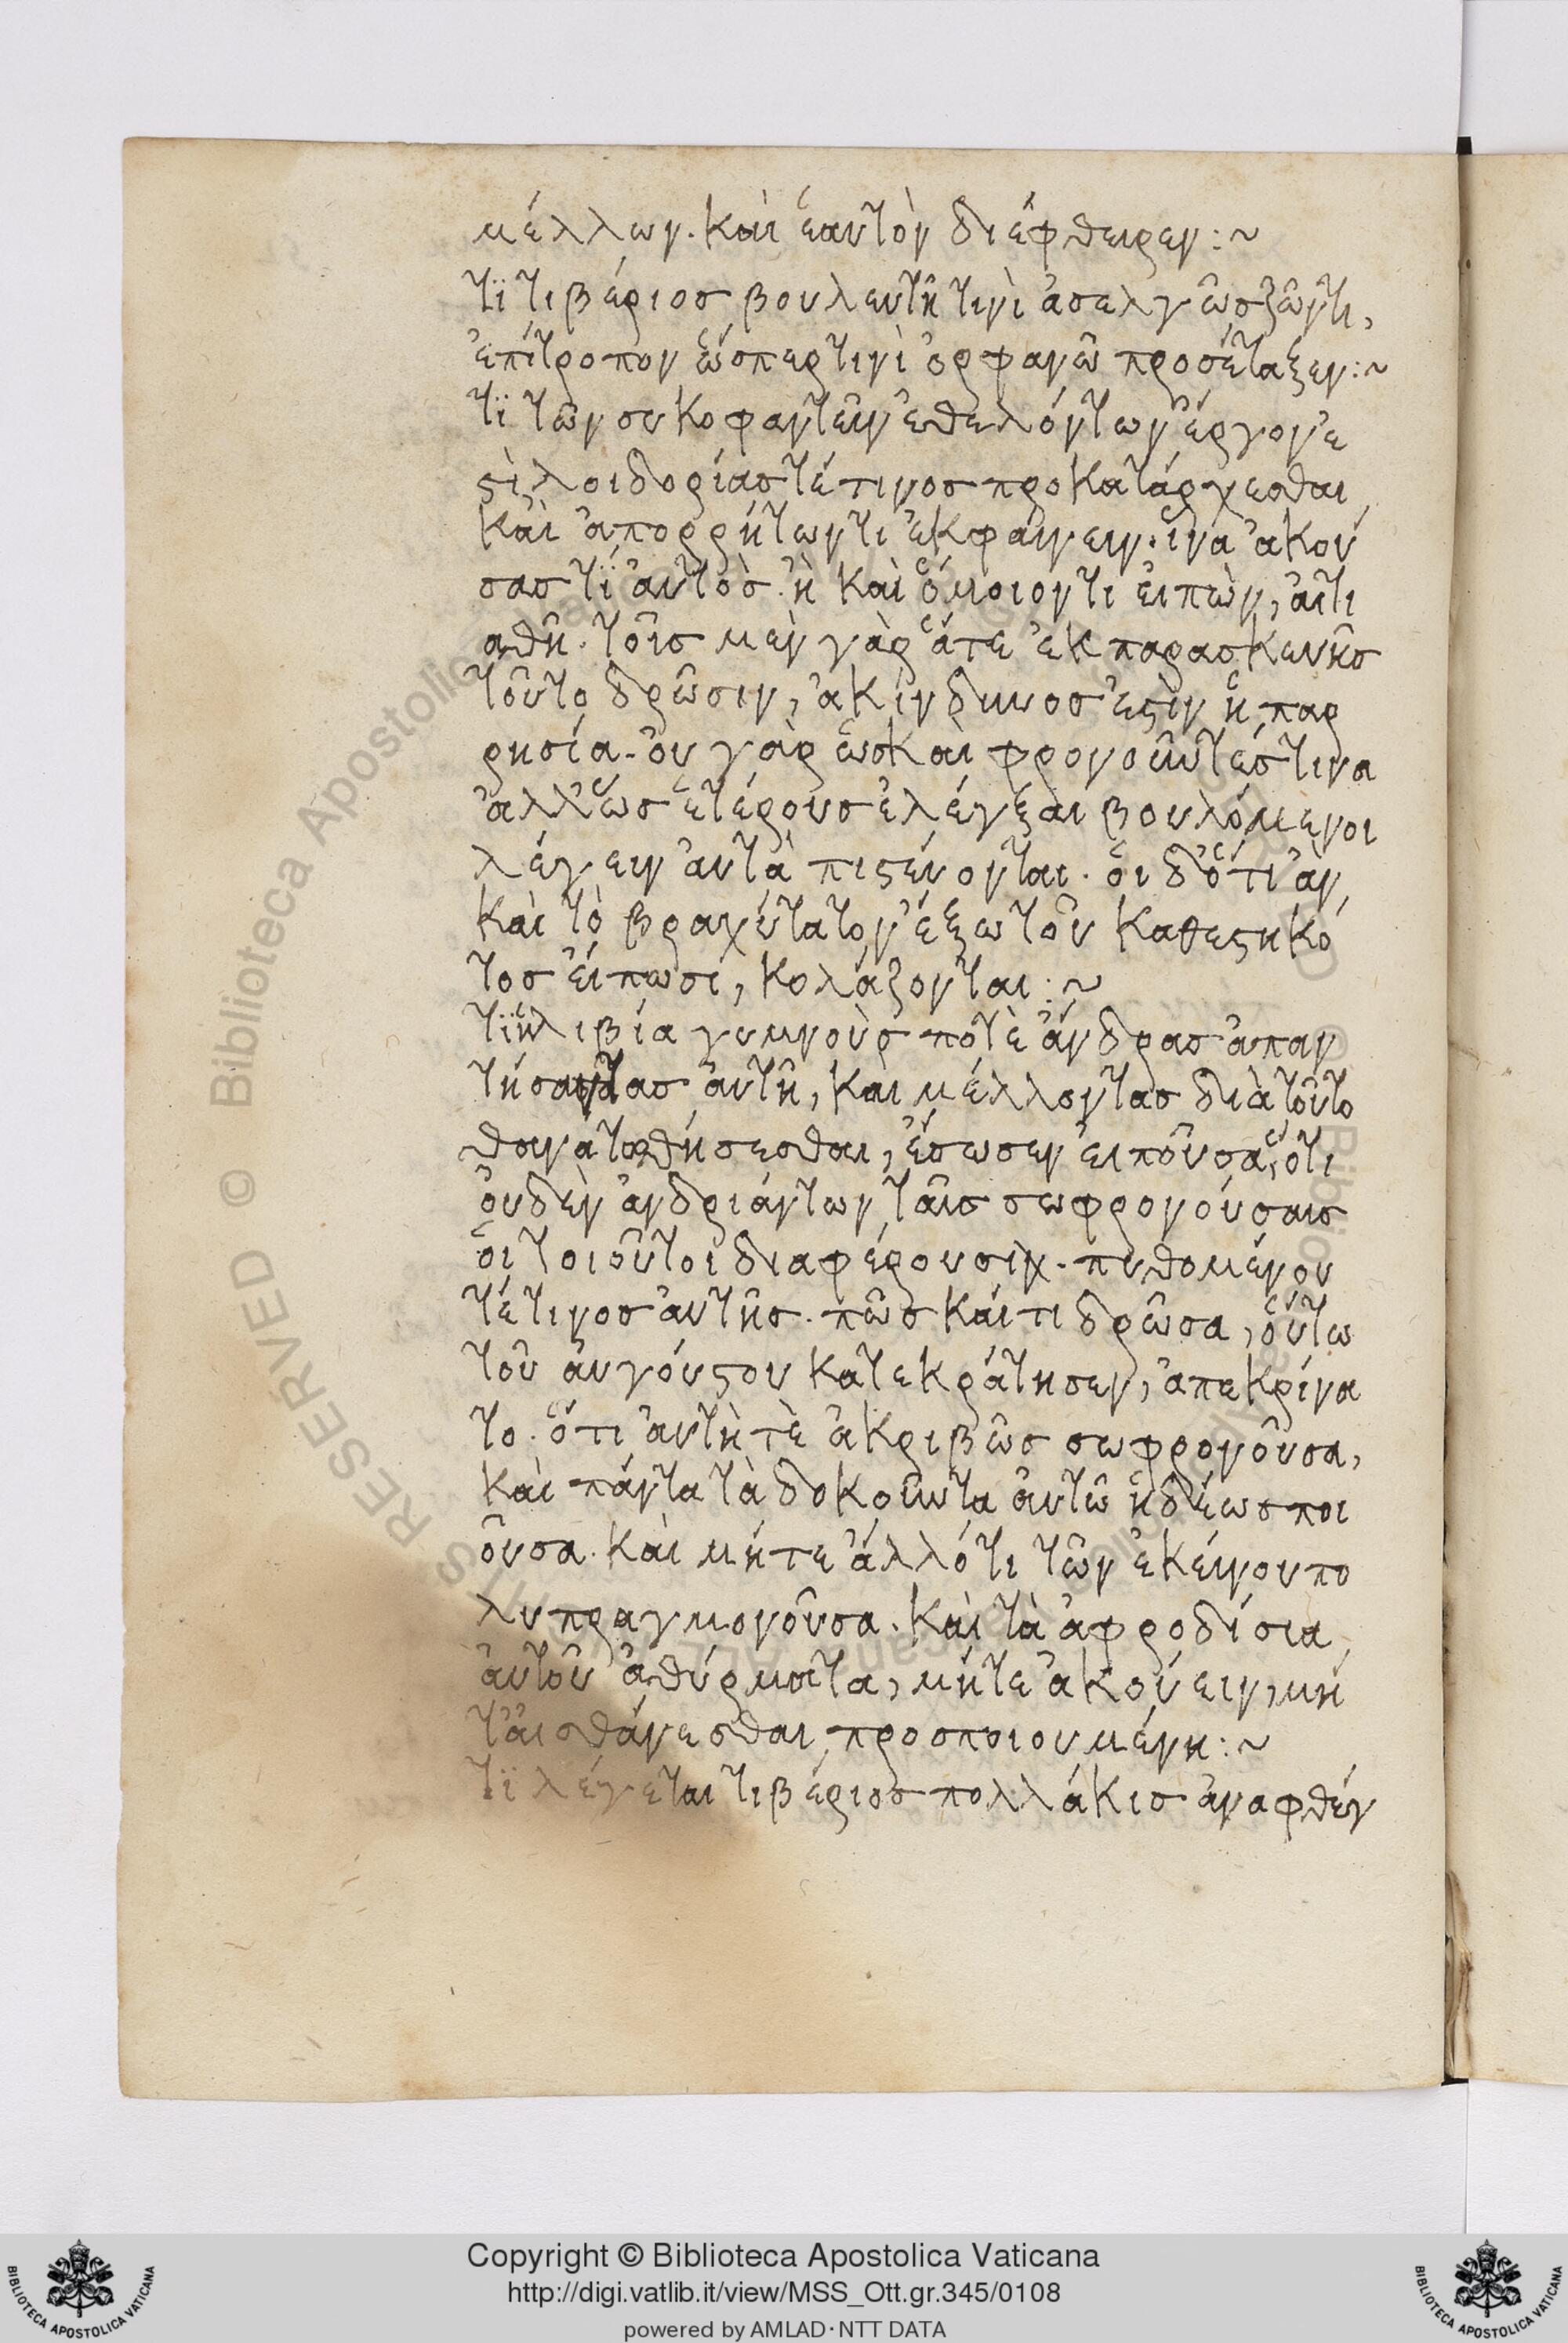 μέλλων. καὶ ἑαυτὸν διέφθειρεν :~
τϊ τιβέριος βουλευτῆ τινὶ ἀσελγῶς ζῶντι,
ἐπίτροπον ὥσπερ τινὶ ὀρφανῶ προσέταξεν :~
τϊ τῶν συκοφαντεῖν ἐθελόντων ἔργον ἐ
ϛὶ, λοιδορίας τέ τινος προκατάρχεσθαι,
καὶ ἀπορρήτων τι ἐκφαίνειν. ἵνα ἀκού
σας τϊ αὐτὸς. ἢ καὶ ὅμοιον τι εἰπὼν, αἰτι
αθῆ. τοῖς μὲν γὰρ ἅτε ἐκ παρασκευῆς
τοῦτο δρῶσιν, ἀκίνδυνος ἐϛὶν ἡ παρ
ρησία. οὐ γὰρ ὡς καὶ φρονοῦντές τινα
ἀλλ' ὡς ἑτέρους ἐλέγξαι βουλόμενοι
λέγειν αὐτὰ πιϛεύονται. οἱ δ' ὅτι ἂν
καὶ τὸ βραχύτατον ἔξω τοῦ καθεϛηκό
τος εἴπωσι, κολάζονται :~
τϊ ἡ λιβία γυμνοὺς ποτὲ ἄνδρας ἀπαν
τήσαντας αὐτῆ, καὶ μέλλοντας διὰ τοῦτο
θανατωθήσεσθαι, ἔσωσεν εἰποῦσα, ὅτι
οὐδὲν ἀνδριάντων ταῖς σωφρονούσαις
οἱ τοιοῦτοι διαφέρουσιν. πυθομένου
τέ τινος αὐτῆς. πῶς καί τι δρῶσα, οὕτω
τοῦ αὐγούϛου κατεκράτησεν, ἀπεκρίνα
το. ὅτι αὐτὴ τὲ ἀκριβῶς σωφρονοῦσα,
καὶ πάντα τὰ δοκοῦντα αὐτῶ ἡδέως ποι
οῦσα. καὶ μήτε ἄλλό τι τῶν ἐκείνου πο
λυπραγμονοῦσα. καὶ τὰ ἀφροδίσια
αὐτοῦ ἀθύρματα, μήτε ἀκούειν, μή
τ' αἰσθάνεσθαι προσποιουμένη :~
τϊ λέγεται τιβέριος πολλάκις ἀναφθέγ
© Biblioteca Apostolica Vaticana
ALL RIGHTS RESERVED
Copyright © Biblioteca Apostolica Vaticana
http://digi.vatlib.it/view/MSS_Ott.gr.345/0108
powered by AMLAD·NTT DATA
BIBLIOTECA APOSTOLICA VATICANA
BIBLIOTECA APOSTOLICA VATICANA